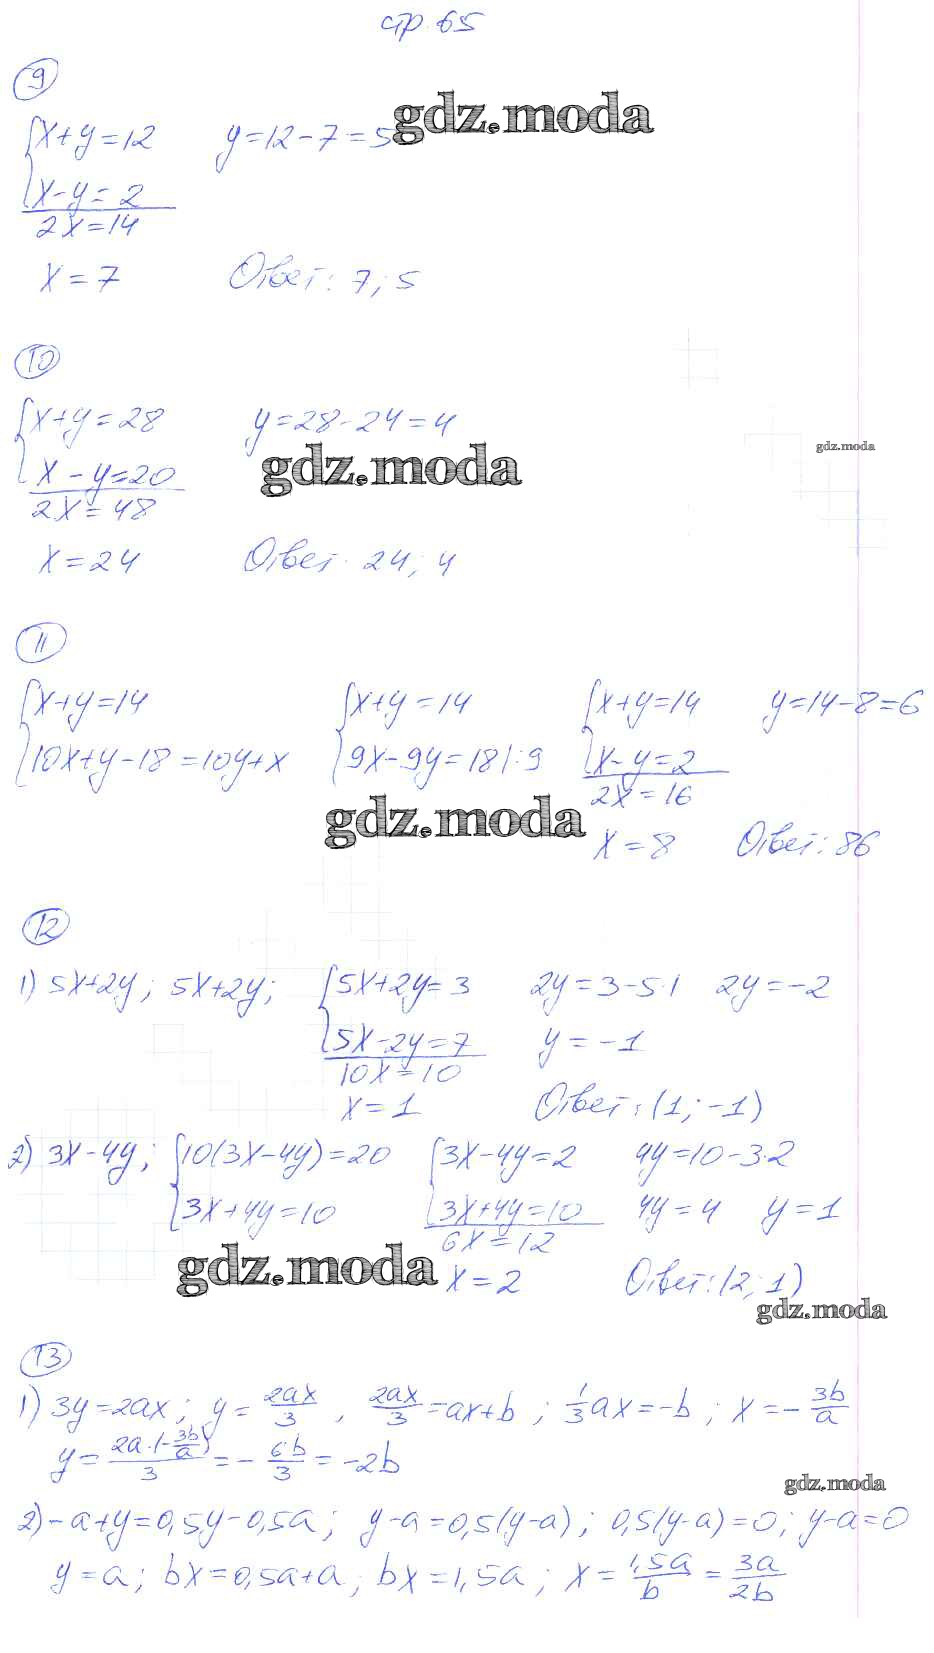 стр. 65
9
{x+y=12 y=12-7=5
gdz.moda
{x-y=2
2x=14
x=7 Ответ: 7; 5
10
{x+y=28 y=28-24=4
gdz.moda
{x-y=20
gdz.moda
2x=48
x=24 Ответ: 24; 4
11
{x+y=14 {x+y=14 {x+y=14 y=14-8=6
{10x+y-18=10y+x {9x-9y=18|:9 {x-y=2
2x=16
gdz.moda
x=8 Ответ: 86
12
1) 5x+2y; 5x+2y; {5x+2y=3 2y=3-5·1 2y=-2
{5x-2y=7 y=-1
10x=10
x=1 Ответ: (1; -1)
2) 3x-4y; {10(3x-4y)=20 {3x-4y=2 4y=10-3·2
{3x+4y=10 {3x+4y=10 4y=4 y=1
6x=12
gdz.moda
x=2 Ответ: (2; 1)
gdz.moda
13
1) 3y=2ax; y=2ax/3, 2ax/3=ax+b; 1/3ax=-b; x=-3b/a
y=2a·(-3b/a)/3=-6b/3=-2b
gdz.moda
2) -a+y=0,5y-0,5a; y-a=0,5(y-a); 0,5(y-a)=0; y-a=0
y=a; bx=0,5a+a; bx=1,5a; x=1,5a/b=3a/2b